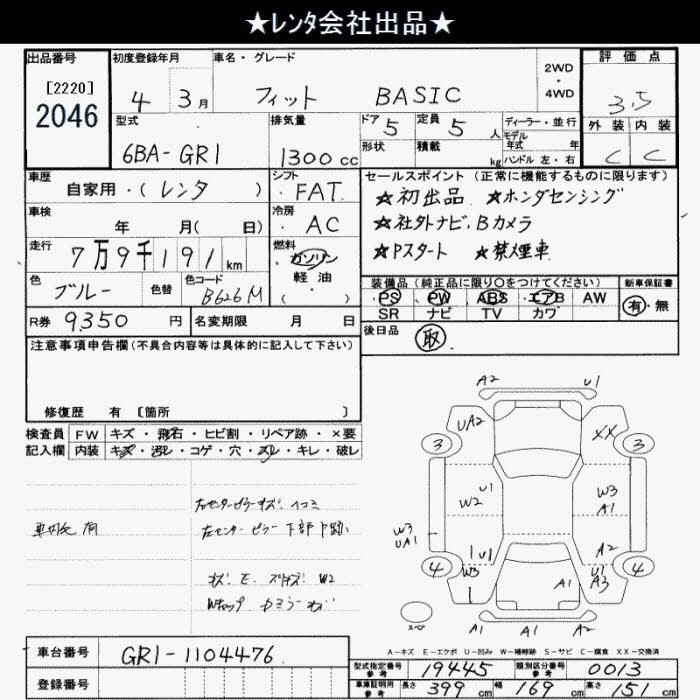 ★レンタ会社出品★
出品番号
[2220]
2046
初度登録年月
4年 3月
車名・グレード
フィット BASIC
2WD
・
4WD
評価点
3.5
型式
6BA-GR1
排気量
1300cc
ドア 5
形状
定員 5 人
積載 kg
ディーラー・並行
モデル
年式 年
ハンドル 左・右
外装 内装
C C
車歴
自家用・(レンタ)
シフト
FAT
車検
年 月( 日)
冷房
AC
走行
7万9千191km
燃料
ガソリン
軽・油
( )
色
ブルー
色替
色コード
B626M
R券 9,350 円
名変期限 月 日
セールスポイント(正常に機能するものに限ります)
★初出品 ★ホンダセンシング
★社外ナビ,Bカメラ
★Pスタート ★禁煙車
装備品(純正品に限り○をつけてください)
PS PW ABS エアB AW
SR ナビ TV カワ
新車保証書
有・無
後日品 取
注意事項申告欄(不具合内容等は具体的に記入して下さい)
修復歴 有 [箇所 ]
検査員
記入欄
FW キズ・飛石・ヒビ割・リペア跡・×要
内装 キズ・汚レ・コゲ・穴・スレ・キレ・破レ
右センターピラーキズ ヘコミ
左センターピラー下部P跡小
W2
A2 U1
UA2 XX
3 3
U1
W2 W3
A1
W3
UA1
U1 A2
W3 A1 U1
A3
4 4
スペア
A1 A1 A2
A-キズ E-エクボ U-凹み W-補修跡 S-サビ C-腐食 XX-交換済
車台番号 GR1-1104476
登録番号
型式指定番号
参考 19445
類別区分番号
参考 0013
車庫証明用
参考
長さ 399 cm 幅 169 cm 高さ 151 cm